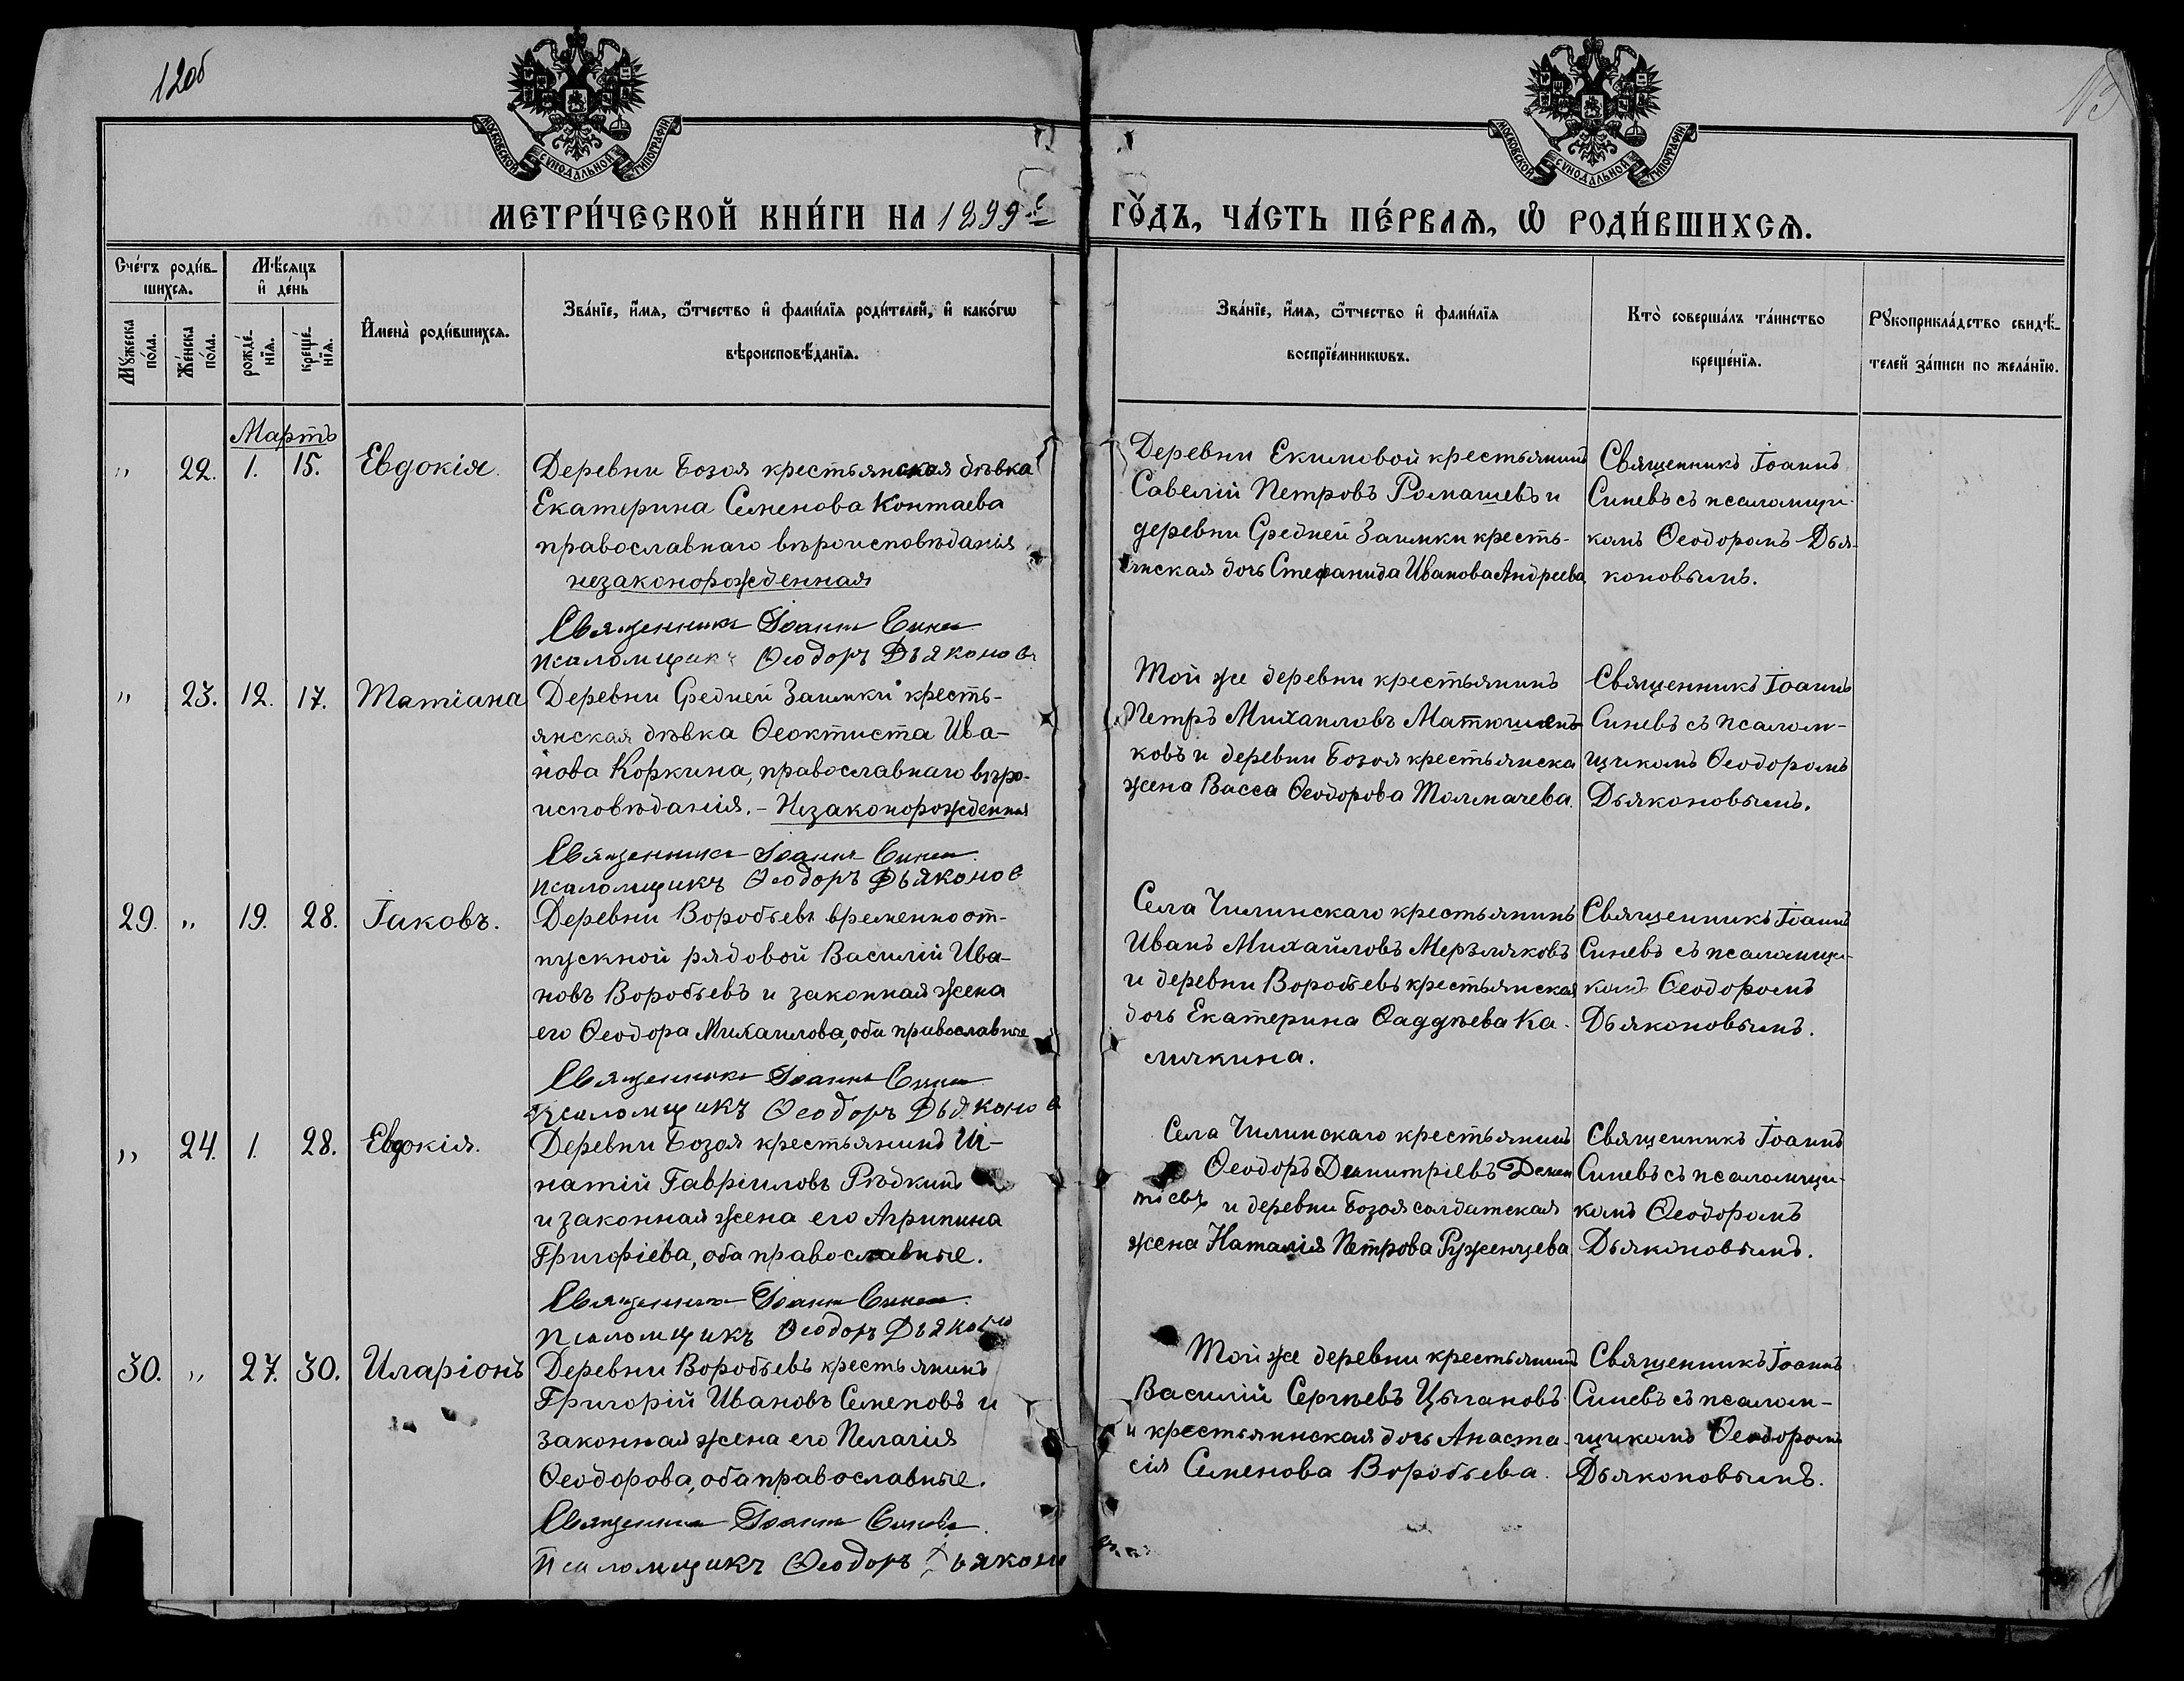 12об
13
МОСКОВСКОЙ СѴНОДАЛЬНОЙ ТИПОГРАФІИ
МОСКОВСКОЙ СѴНОДАЛЬНОЙ ТИПОГРАФІИ
МЕТРИ́ЧЕСКОЙ КНИ́ГИ НА 1899й ГО́ДЪ, ЧА́СТЬ ПЕ́РВАѦ, Ѡ РОДИ́ВШИХСѦ.
Сче́тъ роди́в-
шихсѧ.
Мѣ́сѧцъ
и҆ де́нь
Мꙋжеска
пола.
Же́нска
по́ла.
рожде́-
нїѧ.
креще́-
нїѧ.
И҆мена̀ роди́вшихсѧ.
Зва́нїе, и҆́мѧ, ѻ҆́тчество и҆ фами́лїѧ роди́телей, и҆ како́гѡ
вѣроисповѣ́данїѧ.
Зва́нїе, и҆́мѧ, ѻ҆́тчество и҆ фами́лїѧ
воспрїе́мникѡвъ.
Кто̀ соверша́лъ та́инство
креще́нїѧ.
Рꙋкоприкла́дство свидѣ́-
телей за́писи по жела́нїю.
Мартъ
" 22. 1. 15. Евдокія.
Деревни Бозоя крестьянская дѣвка
Екатерина Семенова Контаева
православнаго вѣроисповѣданія
незаконорожденная
Священникъ Іоаннъ Синев
псаломщикъ Ѳеодоръ Дьяконовъ
Деревни Екимовой крестьянинъ
Савелій Петровъ Ромашевъ и
деревни Средней Заимки кресть-
янская дочь Стефанида Иванова Андреева.
Священникъ Іоаннъ
Синевъ съ псаломщи-
комъ Ѳеодоромъ Дья-
коновымъ.
" 23. 12. 17. Татіана
Деревни Средней Заимки кресть-
янская дѣвка Ѳеоктиста Ива-
нова Коркина, православнаго вѣро-
исповѣданія. - Незаконорожденная
Священникъ Іоаннъ Синев
псаломщикъ Ѳеодоръ Дьяконов
Той же деревни крестьянинъ
Петръ Михаиловъ Матюшен-
ковъ и деревни Бозоя крестьянска
жена Васса Ѳеодорова Толмачева.
Священникъ Іоаннъ
Синевъ съ псалом-
щикомъ Ѳеодоромъ
Дьяконовымъ.
29. " 19. 28. Іаковъ.
Деревни Воробьевъ временно от-
пускной рядовой Василій Ива-
новъ Воробьевъ и законная жена
его Ѳеодора Михаилова, оба православные
Священникъ Іоаннъ Синев
псаломщикъ Ѳеодоръ Дьяконов
Села Чилинскаго крестьянинъ
Иванъ Михайловъ Мерзляковъ
и деревни Воробьевъ крестьянская
дочь Екатерина Ѳаддѣева Ка-
лякина.
Священникъ Іоаннъ
Синевъ съ псаломщи-
комъ Ѳеодоромъ
Дьяконовымъ.
" 24. 1. 28. Евдокія.
Деревни Бозоя крестьянинъ Иг-
натій Гавріиловъ Рѣдкинъ
и законная жена его Агрипина
Григоріева, оба православные.
Священникъ Іоаннъ Синев
псаломщикъ Ѳеодоръ Дьяконо
Села Чилинскаго крестьянинъ
Ѳеодоръ Димитріевъ Демен
тьевъ и деревни Бозоя солдатская
жена Наталія Петрова Руженцева
Священникъ Іоаннъ
Синевъ съ псаломщи-
комъ Ѳеодоромъ
Дьяконовымъ.
30. " 27. 30. Иларіонъ
Деревни Воробьевъ крестьянинъ
Григорій Ивановъ Семеновъ и
законная жена его Пелагія
Ѳеодорова, оба православные.
Священникъ Іоаннъ Синевъ
Псаломщикъ Ѳеодоръ Дьяконо
Той же деревни крестьянинъ
Василій Сергѣевъ Цыгановъ
и крестьянинская дочь Анаста-
сія Семенова Воробьева.
Священникъ Іоаннъ
Синевъ съ псалом-
щикомъ Ѳеодоромъ
Дьяконовымъ.